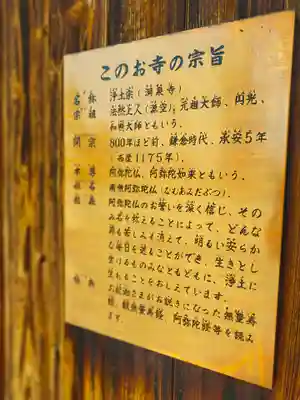 このお寺の宗旨
名称 浄土宗(洞泉寺)
宗祖 法然上人(源空)、元祖大師、円光、
和順大師ともいう。
開宗 800年ほど前、鎌倉時代、承安5年
(西暦1175年)。
本尊 阿弥陀仏、阿弥陀如来ともいう。
名 南無阿弥陀仏(なむあみだぶつ)。
阿弥陀仏のお誓いを深く信じ、そ
の名を称えることによって、どんな
罪も苦しみも消えて、明るい安らか
な毎日を送ることができ、生きとし
生けるものみなともどもに、浄土に
生れることをおしえています。
お釈迦さまがお説きになった無量寿
経、観無量寿経、阿弥陀経等を読み
ます。